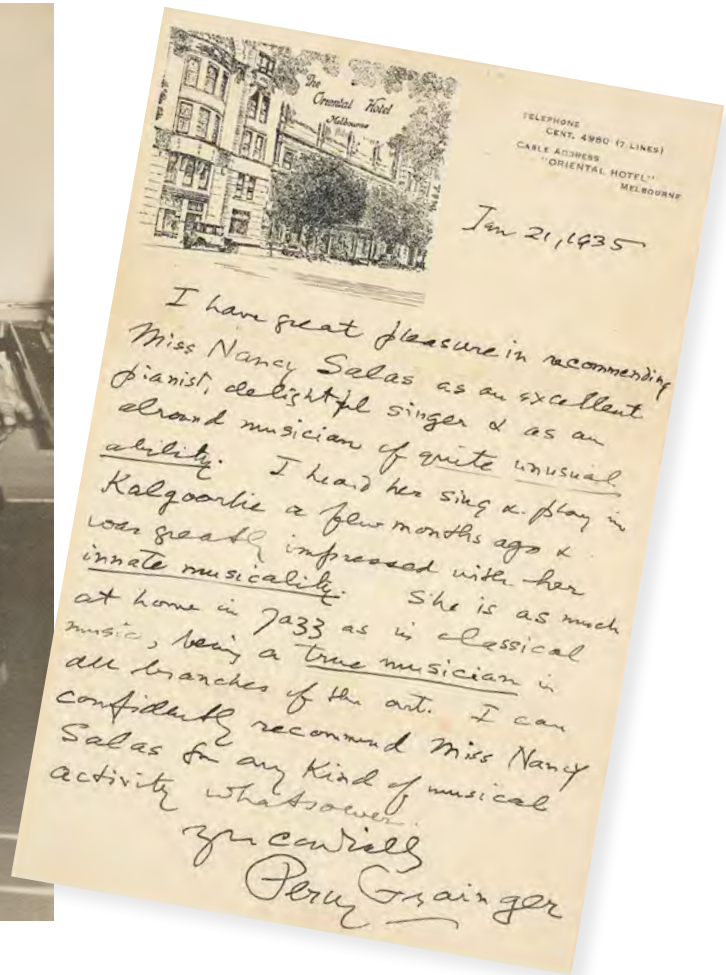 The
Oriental Hotel
Melbourne
TELEPHONE
CENT. 4980 (7 LINES)
CABLE ADDRESS
"ORIENTAL HOTEL"
MELBOURNE
Jan 21, 1935
I have great pleasure in recommending
Miss Nancy Salas as an excellent
pianist, delightful singer & as an
alround musician of quite unusual
ability. I heard her sing & play in
Kalgoorlie a few months ago &
was greatly impressed with her
innate musicality. She is as much
at home in Jazz as in classical
music, being a true musician in
all branches of the art. I can
confidently recommend Miss Nancy
Salas for any kind of musical
activity whatsoever.
Yrs cordially
Percy Grainger